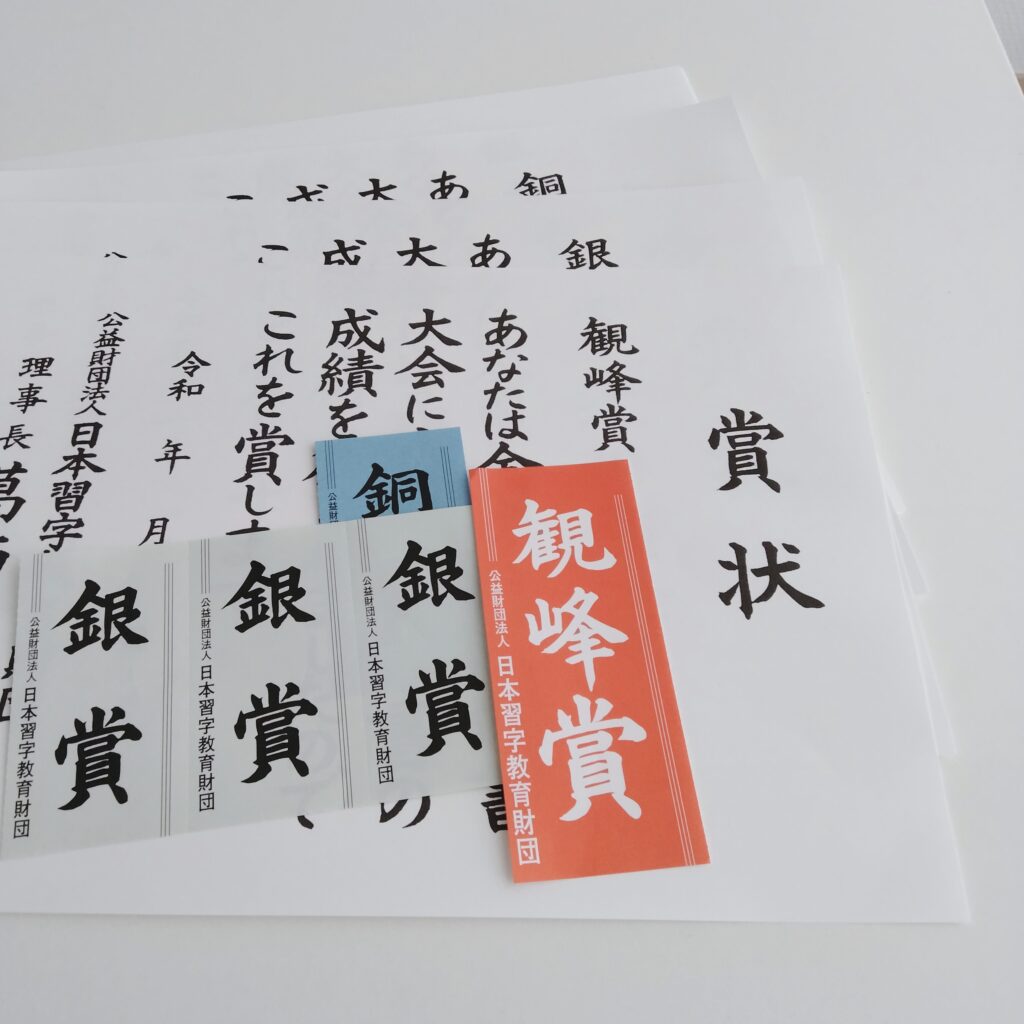 銅
あ
大
銀
あ
大
成
賞状
観峰賞
あなたは全
大会に
成績を
これを賞し
令和 年 月
公益財団法人日本習字
理事長
銅
観峰賞
公益財団法人 日本習字教育財団
銀賞
公益財団法人 日本習字教育財団
銀賞
公益財団法人 日本習字教育財団
銀賞
公益財団法人 日本習字教育財団